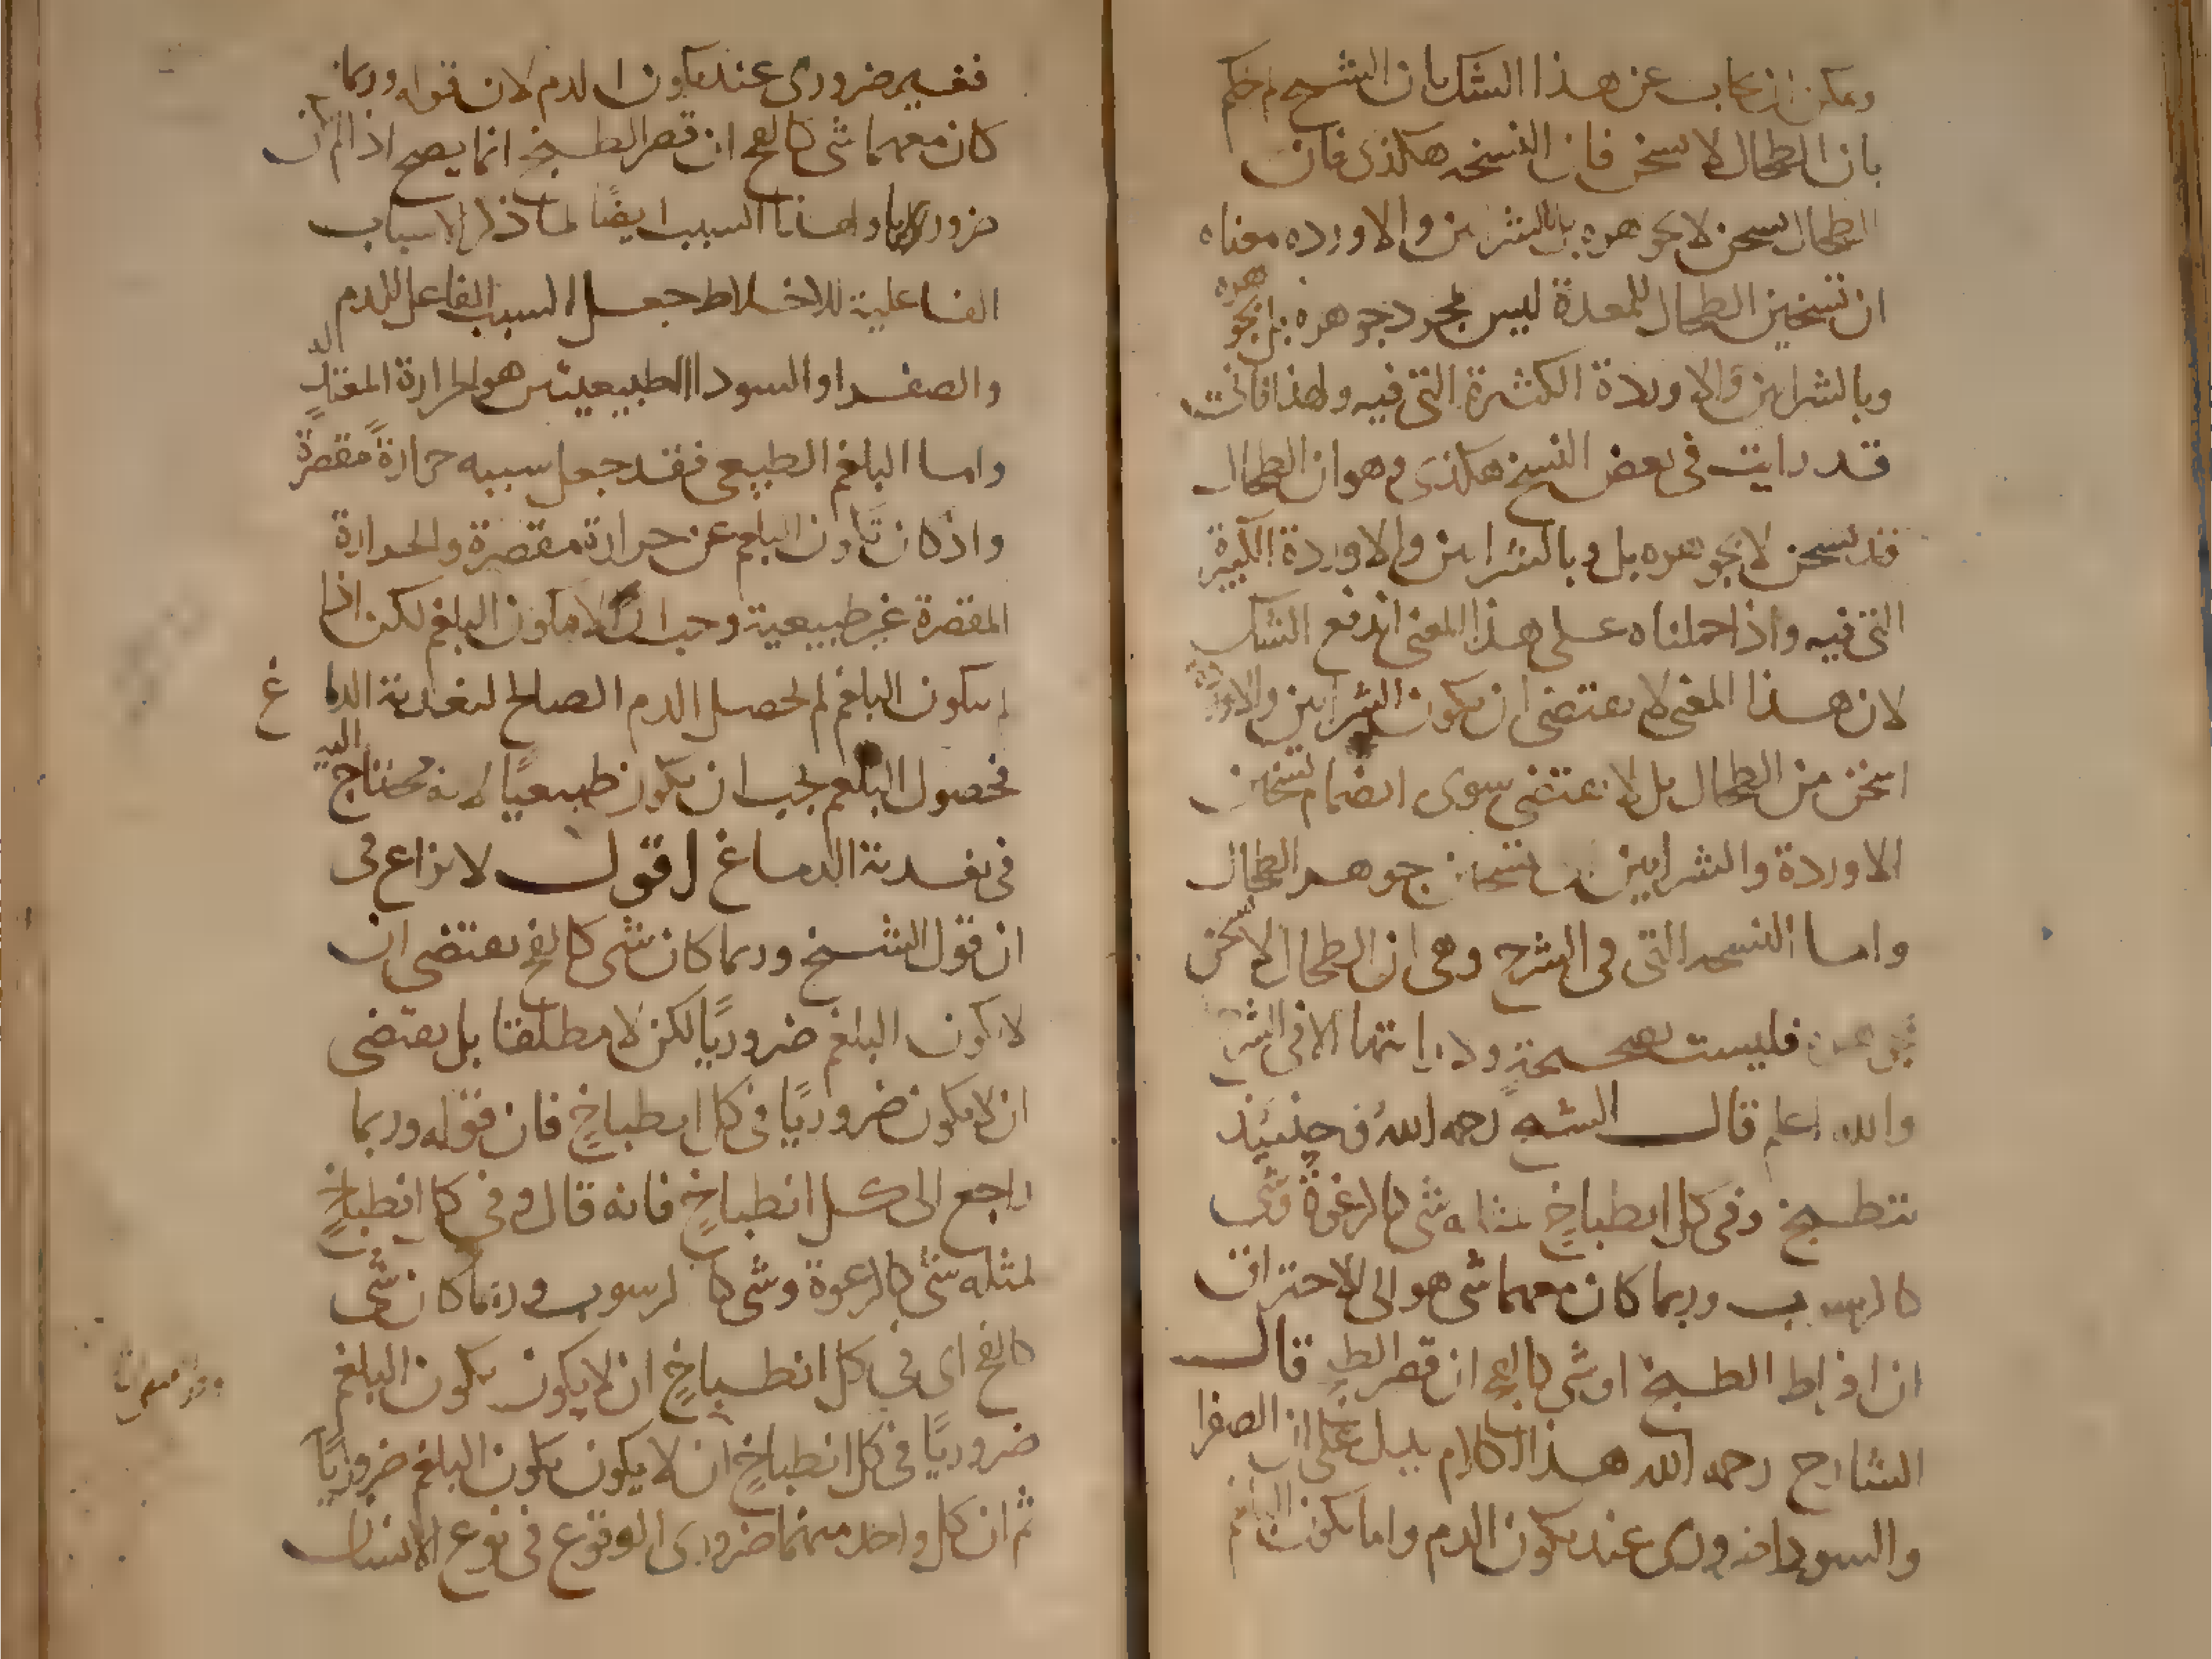 ويمكن ان يجاب عن هذا الشك بان الشيخ لم يحكم
بان الطحال لا يسخن فان النسخه هكذى فان
الطحال يسخن لا بجوهره بل بالشرايين والاورده معناه
ان تسخين الطحال للمعدة ليس لمجرد جوهره بل بجوهره
وبالشرايين والاوردة الكثيرة التى فيه ولهذا فانى
قد رايت فى بعض النسخ هكذى وهو ان الطحال
قد يسخن لا بجوهره بل وبالشرايين والاوردة الكبيرة
التى فيه واذا حملناه على هذا المعنى اندفع الشك
لان هذا المعنى لا يقتضى ان يكون الشرايين والاوردة
اسخن من الطحال بل لا يقتضى سوى انضمام تسخين
الاوردة والشرايين الى تسخين جوهر الطحال
واما النسخه التى فى الشرح وهى ان الطحال لا يسخن
بجوهره فليست بصحيحة ولا رايتها الا فى الشرح
والله اعلم قال الشيخ رحمه الله فحينئذ
تنطبخ وفى كل انطباخ لمثله شى كالرغوة وشى
كالرسوب وربما كان معهما شى هو الى الاحتراق
ان افرط الطبخ او شى كالفج ان قصر الطبخ قال
الشارح رحمه الله هذا الكلام يدل على ان الصفرا
والسودا ضرورى عند تكون الدم واما تكون البلغم
فغير ضرورى عند تكون الدم لان قوله وربما
كان معهما شى كالفج ان قصر الطبخ انما يصح اذا لم يكن
ضروريا ولهذا السبب ايضًا لما ذكر الاسباب
الفاعلية للاخلاط جعل السبب الفاعل للدم
والصفرا والسودا الطبيعيتين هو الحرارة المعتدلة
واما البلغم الطبيعى فقد جعل سببه حرارةً مقصرةً
واذ كان تكون البلغم عن حرارة مقصرة والحرارة
المقصرة غير طبيعية وجب ان لا يكون البلغم لكن اذا
لم يتكون البلغم لم يحصل الدم الصالح لتغدية الدماغ
فحصول البلغم يجب ان يكون طبيعيًا لانه محتاج اليه
فى تغدية الدماغ اقول لا نزاع فى
ان قول الشيخ وربما كان شى كالفج يقتضى ان
لا يكون البلغم ضروريًا لكن لا مطلقا بل يقتضى
ان لا يكون ضروريًا فى كل انطباخٍ فان قوله وربما
راجع الى كل انطباخٍ فانه قال وفى كل انطباخٍ
لمثله شى كالرغوة وشى كالرسوب وربما كان شى
كالفج اى فى كل انطباخٍ ان لا يكون تكون البلغم
ضروريًا فى كل انطباخٍ ان لا يكون تكون البلغم ضروريًا
ثم ان كل واحد منهما ضرورى الوقوع فى نوع الانسان